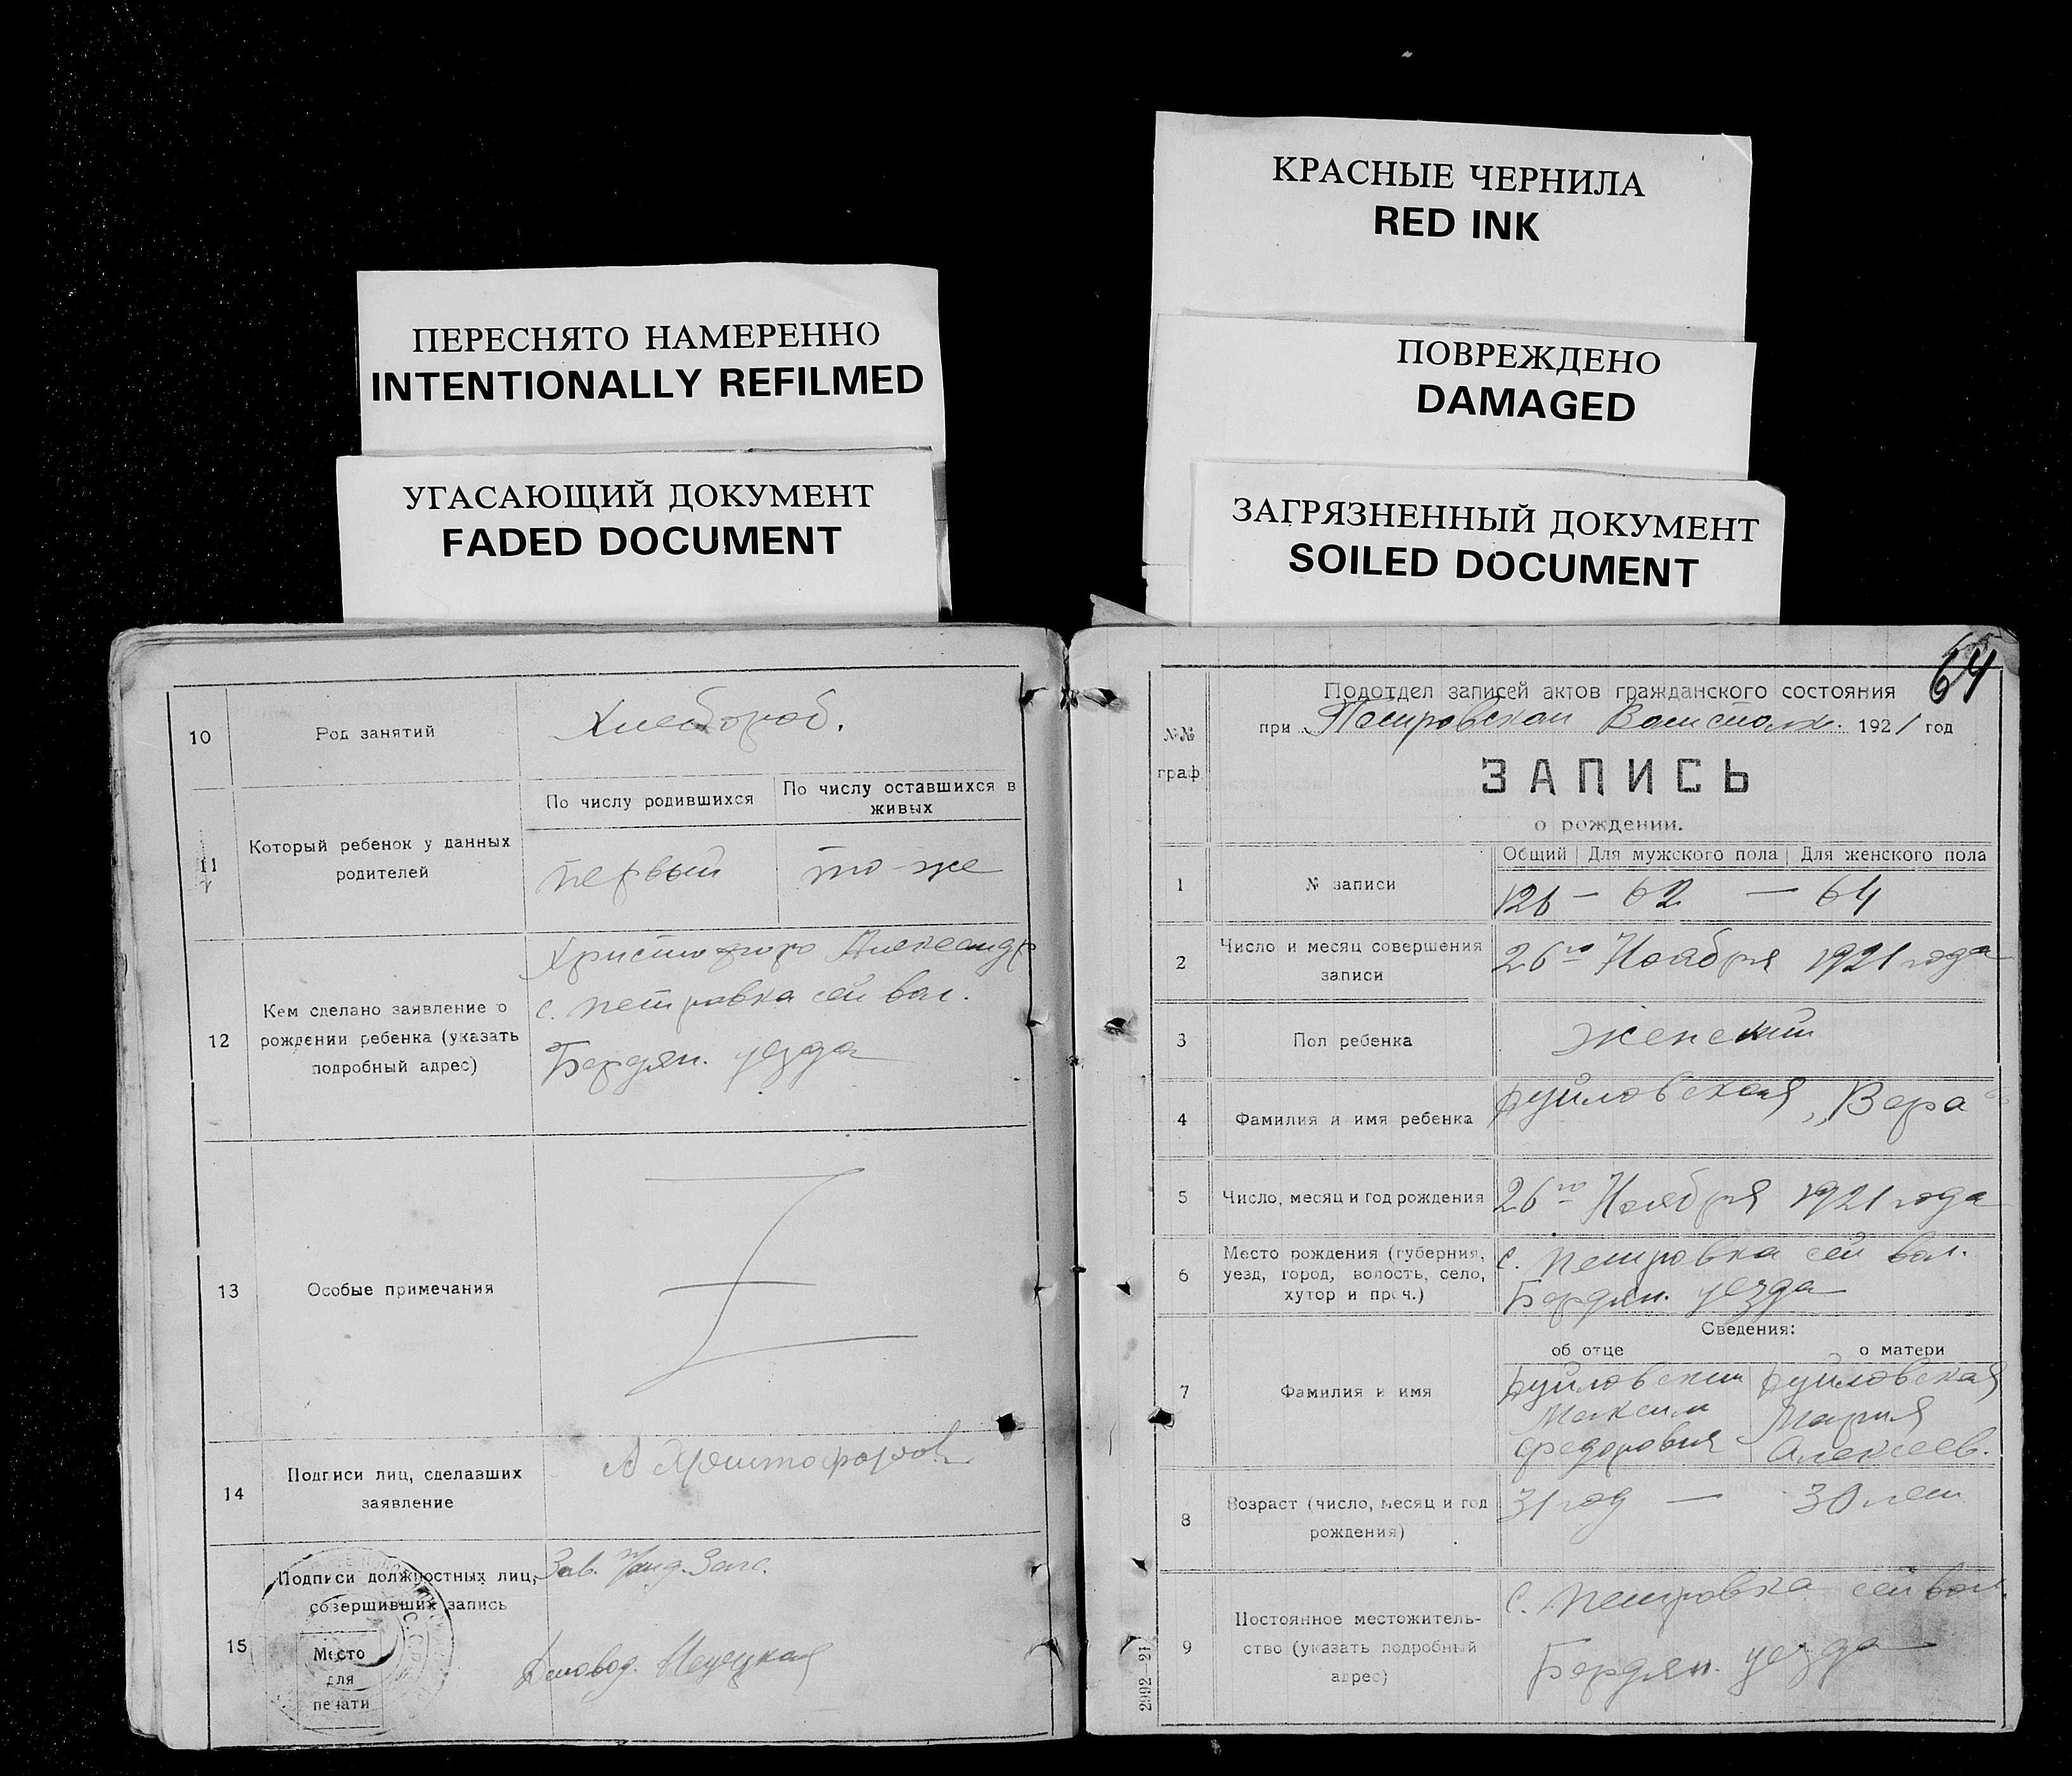 КРАСНЫЕ ЧЕРНИЛА
RED INK
ПЕРЕСНЯТО НАМЕРЕННО
INTENTIONALLY REFILMED
ПОВРЕЖДЕНО
DAMAGED
УГАСАЮЩИЙ ДОКУМЕНТ
FADED DOCUMENT
ЗАГРЯЗНЕННЫЙ ДОКУМЕНТ
SOILED DOCUMENT
10 Род занятий Хлебороб.
11 Который ребенок у данных родителей
По числу родившихся
По числу оставшихся в живых
первый
то-же
12 Кем сделано заявление о рождении ребенка (указать подробный адрес)
Христофоро Александр
с. петровка сей вол.
Бердян. уезда
13 Особые примечания
14 Подписи лиц, сделавших заявление
А Христофоров
15 Подписи должностных лиц, совершивших запись
Зав. Загс.
Деловод.
Место
для
печати
64
№№ граф
Подотдел записей актов гражданского состояния
при Петровском 1921 год
ЗАПИСЬ
о рождении.
Общий Для мужского пола Для женского пола
1 № записи 126 — 62 — 64
2 Число и месяц совершения записи 26го Ноября 1921 года
3 Пол ребенка Женский
4 Фамилия и имя ребенка „Вера"
5 Число, месяц и год рождения 26го Ноября 1921 года
6 Место рождения (губерния, уезд, город, волость, село, хутор и проч.)
с. петровка сей вол.
Бердян. уезда
Сведения:
об отце о матери
7 Фамилия и имя
Максим Мария
Федорович Алексеев.
8 Возраст (число, месяц и год рождения) 31 год — 30 лет
9 Постоянное местожительство (указать подробный адрес)
с. петровка сей вол
Бердян. уезда
2992—21